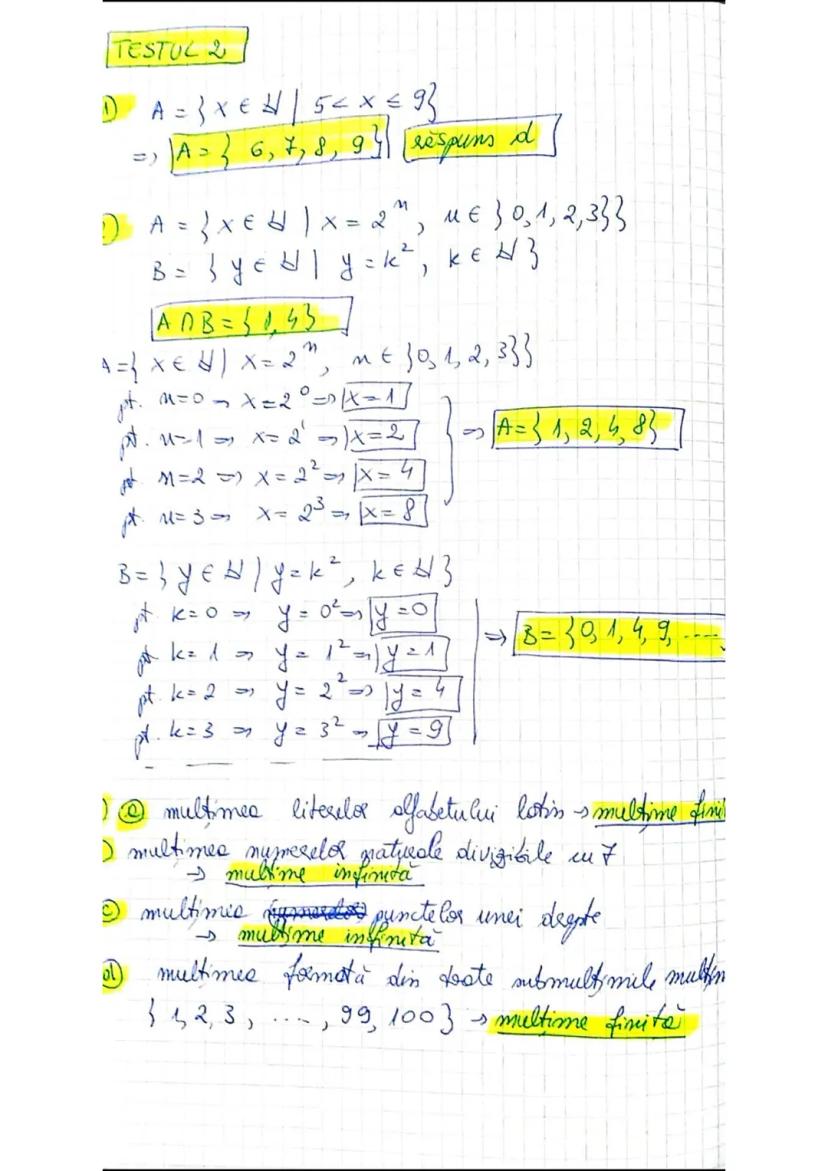 TESTUL 2
1) A = { x ∈ ℕ | 5 < x ≤ 9}
=> A = { 6, 7, 8, 9} răspuns d
) A = { x ∈ ℕ | x = 2ⁿ, n ∈ {0, 1, 2, 3}}
B = { y ∈ ℕ | y = k², k ∈ ℕ }
A ∩ B = { 1, 4}
A = { x ∈ ℕ | x = 2ⁿ, n ∈ {0, 1, 2, 3}}
pt. n=0 => x = 2⁰ => x = 1
pt. n=1 => x = 2¹ => x = 2
pt. n=2 => x = 2² => x = 4
pt. n=3 => x = 2³ => x = 8
=> A = { 1, 2, 4, 8}
B = { y ∈ ℕ / y = k², k ∈ ℕ }
pt k=0 => y = 0² => y = 0
pt k=1 => y = 1² => y = 1
pt. k=2 => y = 2² => y = 4
pt. k=3 => y = 3² => y = 9
=> B = {0, 1, 4, 9, ....
) a) mulțimea literelor alfabetului latin → mulțime fini
) mulțimea numerelor naturale divizibile cu 7
→ mulțime infinită
c) mulțimea numerelor punctelor unei drepte
→ mulțime infinită
d) mulțimea formată din toate submulțimile mulțim
{ 1, 2, 3, ...., 99, 100 } → mulțime finită